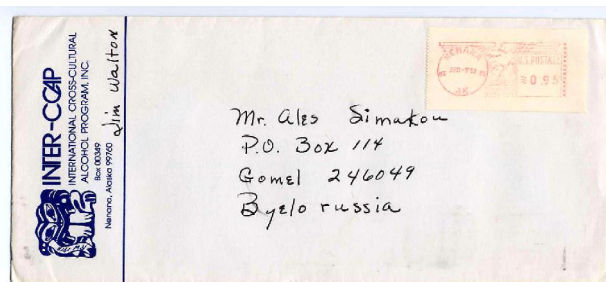 INTER-CCAP
INTERNATIONAL CROSS-CULTURAL
ALCOHOL PROGRAM, INC.
Box 00349
Nenana, Alaska 99760
Jim Walton
NENANA
AK
U.S. POSTAGE
0.95
Mr. Ales Simakou
P.O. Box 114
Gomel 246049
Byelorussia